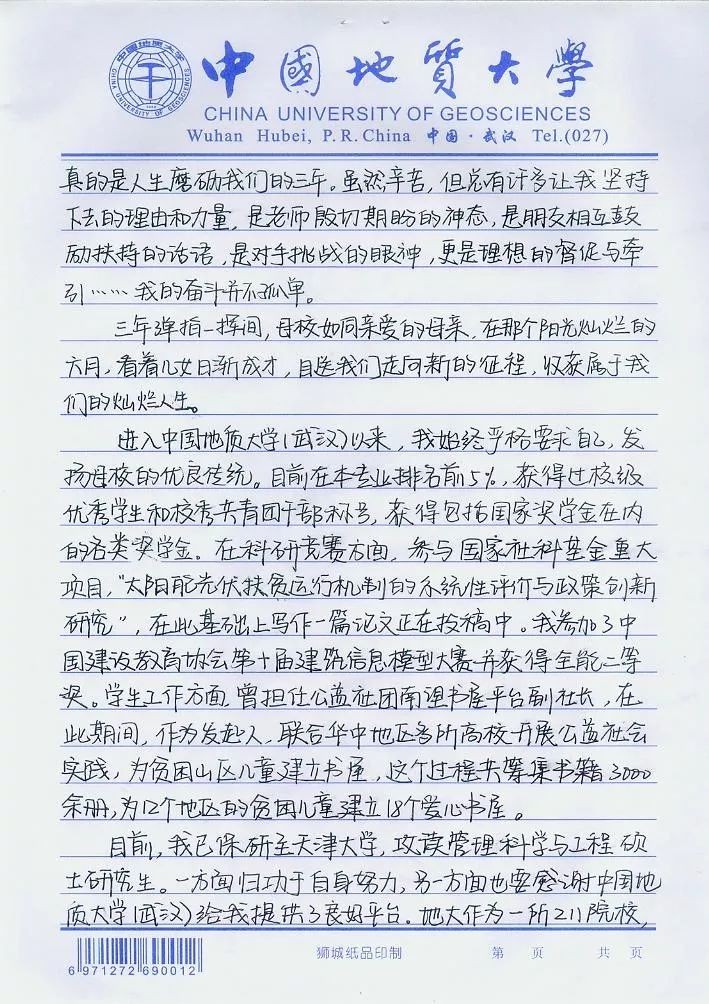 中國地質大學
CHINA UNIVERSITY OF GEOSCIENCES
Wuhan Hubei, P.R.China 中国·武汉 Tel.(027)
真的是人生磨砺我们的三年。虽然辛苦，但总有许多让我坚持
下去的理由和力量，是老师殷切期盼的神态，是朋友相互鼓
励扶持的话语，是对手挑战的眼神，更是理想的督促与牵
引……我的奋斗并不孤单。
三年弹指一挥间，母校如同亲爱的母亲，在那个阳光灿烂的
六月，看着儿女日渐成才，目送我们走向新的征程，收获属于我
们的灿烂人生。
进入中国地质大学(武汉)以来，我始终严格要求自己，发
扬母校的优良传统。目前在本专业排名前5%，获得过校级
优秀学生和校秀共青团干部称号，获得包括国家奖学金在内
的各类奖学金。在科研竞赛方面，参与国家社科基金重大
项目，“太阳能光伏扶贫运行机制的系统性评价与政策创新
研究”，在此基础上写作一篇论文正在投稿中。我参加了中
国建设教育协会第十届建筑信息模型大赛并获得全能二等
奖。学生工作方面，曾担任公益社团南望书屋平台副社长，在
此期间，作为发起人，联合华中地区各所高校开展公益社会
实践，为贫困山区儿童建立书屋，这个过程共筹集书籍3000
余册，为12个地区的贫困儿童建立18个爱心书屋。
目前，我已保研至天津大学，攻读管理科学与工程硕
士研究生。一方面归功于自身努力，另一方面也要感谢中国地
质大学(武汉)给我提供了良好平台。地大作为一所211院校，
6 971272 690012
狮城纸品印制 第 页 共 页